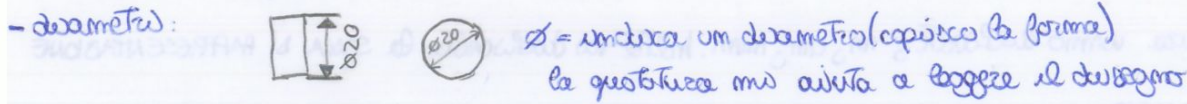 - diametri:
⌀20
⌀20
⌀ = indica un diametro (capisco la forma)
la quotatura mi aiuta a leggere il disegno